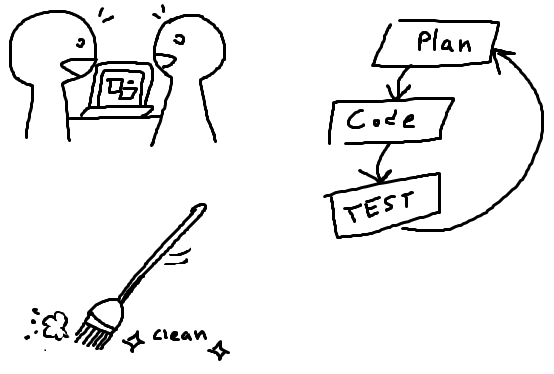 Plan
Code
TEST
clean